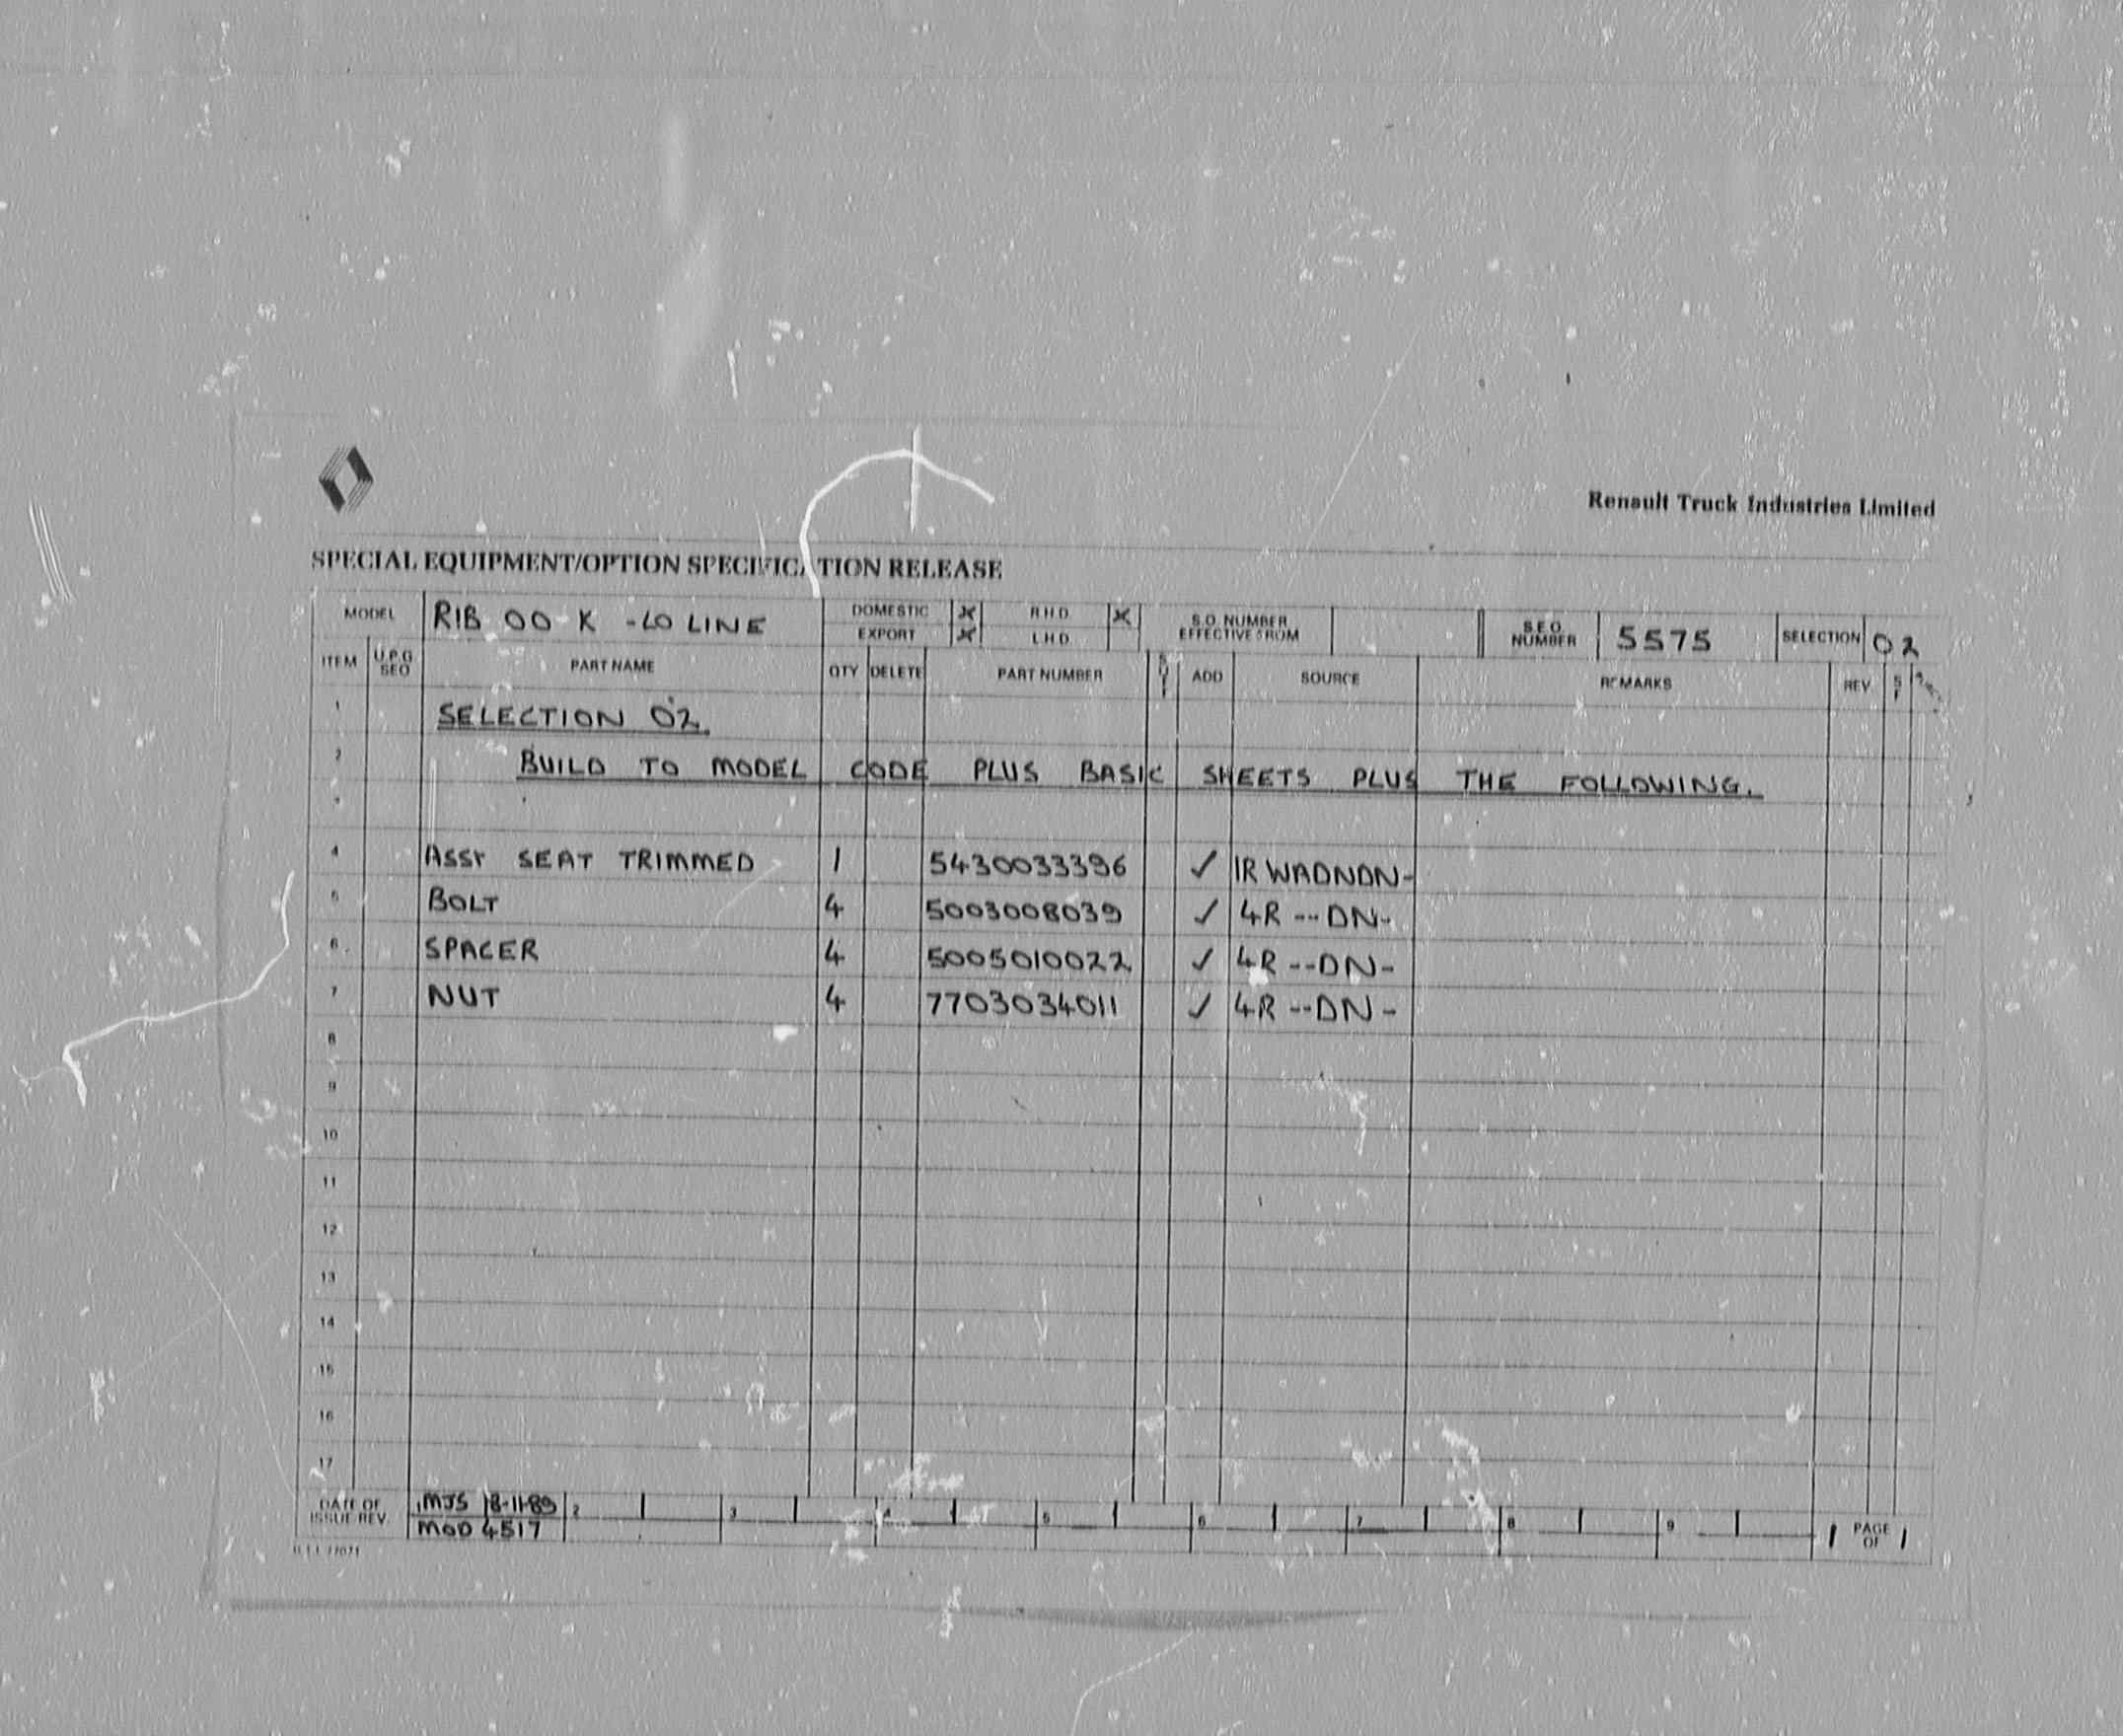 Renault Truck Industries Limited
SPECIAL EQUIPMENT/OPTION SPECIFICATION RELEASE
MODEL RIB 00 K - LO LINE DOMESTIC X R.H.D. X S.O. NUMBER EFFECTIVE FROM S.E.O. NUMBER 5575 SELECTION 02
EXPORT X L.H.D.
ITEM U.P.G SEO PART NAME QTY DELETE PART NUMBER ADD SOURCE REMARKS REV
1 SELECTION 02.
2 BUILD TO MODEL CODE PLUS BASIC SHEETS PLUS THE FOLLOWING.
4 ASSY SEAT TRIMMED 1 5430033396 ✓ 1R WADNDN-
5 BOLT 4 5003008039 ✓ 4R --DN-
6 SPACER 4 5005010022 ✓ 4R --DN-
7 NUT 4 7703034011 ✓ 4R --DN-
8
9
10
11
12
13
14
15
16
17
DATE OF ISSUE REV. MJS 18-11-89 2 3 4 5 6 7 8 9 1 PAGE OF 1
MOD 4517